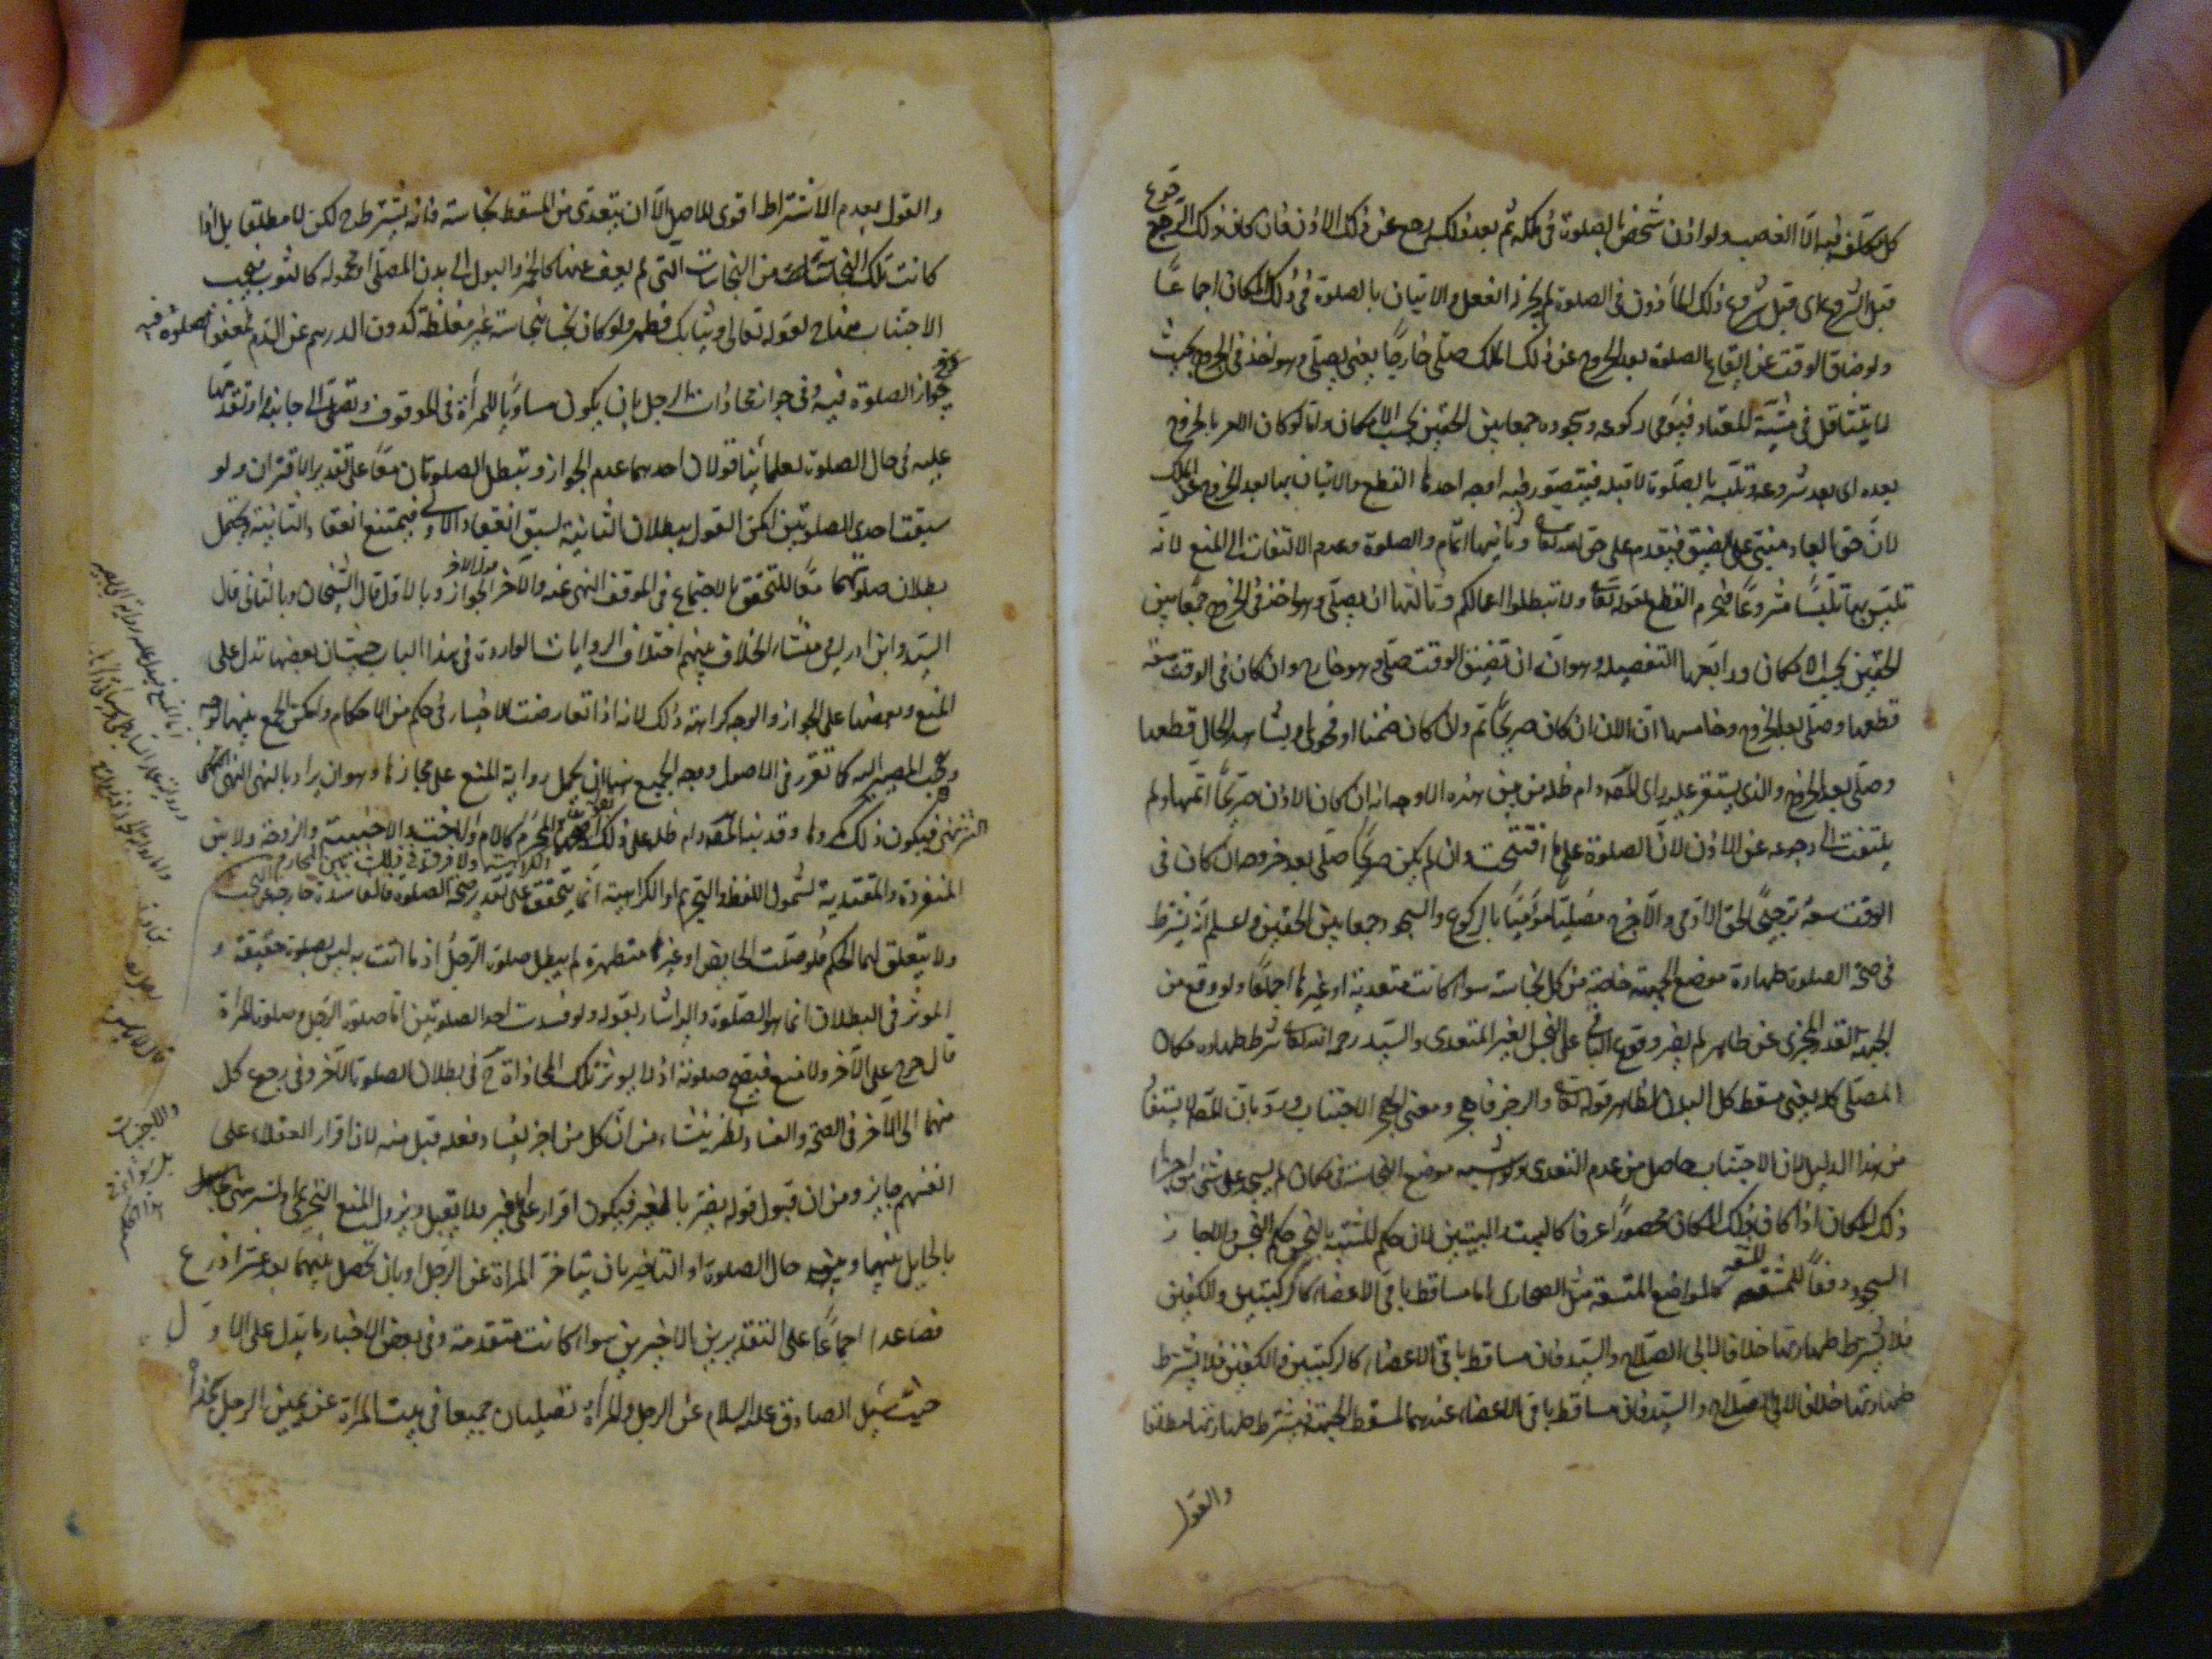 كل تكلف فيه الا الغصب ولو اذن شخص بالصلوة فى ملكه ثم بعد ذلك رجع عن ذلك الاذن فان كان ذلك الرجوع
قبل الشروع اى قبل شروع ذلك المأذون فى الصلوة لم يجز ذا الفعل والاتيان بالصلوة فى ذلك المكان اجماعًا
ولو ضاق الوقت عن ايقاع الصلوة بعد الخروج عن ذلك الملك صلى خارجًا يعنى يصلى وهو اخذ فى الخروج بحيث
لا يتثاقل فى مشيته المعتاد فيومى ركوعه وسجوده جمعا بين الحقين بحسب الامكان واما لو كان الامر بالخروج
بعده اى بعد شروعه وتلبسه بالصلوة لا قبله فيتصور فيه اوجه احدها القطع والاتيان بها بعد الخروج عن الملك
لان حق العباد مبنى على الضيق فيقدم على حق الله تعالى وثانيها اتمام الصلوة وعدم الالتفات الى المنع لانه
تلبس بها تلبسًا مشروعًا فيحرم القطع لقوله تعالى ولا تبطلوا اعمالكم وثالثها ان يصلى وهو اخذ فى الخروج جمعا بين
الحقين بحسب الامكان ورابعها التفصيل وهو انه ان تضيق الوقت صلى وهو خارج وان كان فى الوقت سعة
قطعها وصلى بعد الخروج وخامسها ان الاذن ان كان صريحًا تم وان كان ضمنا او فحوى او بشاهد الحال قطعها
وصلى بعد الخروج والذى يستقر عليه راى المصنف دام ظله من بين هذه الاوجه انه ان كان الاذن صريحًا اتمها ولم
يلتفت الى رجوعه عن الاذن لان الصلوة على ما افتتحت وان لم يكن صريحًا صلى بعد خروجه ان كان فى
الوقت سعة ترجيحًا لحق الادمى والا خرج مصليًا موميًا بالركوع والسجود جمعا بين الحقين واعلم انه يشترط
فى صحة الصلوة طهارة موضع الجبهة خاصة من كل نجاسة سواء كانت متعدية او غيرها اجماعًا ولو وقع من
الجبهة القدر المجزى عن طاهر لم يضر وقوع الباقى على النجس الغير المتعدى والسيد رحمه الله تعالى شرط طهارة مكان
المصلى كله يعنى مسقط كل البدن لظاهر قوله تعالى والرجز فاهجر ومعنى الهجر الاجتناب ورد بان المصنف لا يستفاد
من هذا الدليل لان الاجتناب حاصل من عدم التعدى ولو اشتبه موضع النجاسة فى مكان لم يسجد على شئ من اجزاء
ذلك المكان اذا كان ذلك المكان محصورًا عرفا كالبيت والبيتين لان حكم المشتبه بالنجس حكم النجس والا جاز
السجود دفعًا للمشقة كالمواضع المتسعة مثل الصحارى اما مساقط باقى الاعضاء كالركبتين والكفين
فلا يشترط طهارتها خلافا لابى الصلاح والسيد فان مساقط باقى الاعضاء كالركبتين والكفين فلا يشترط
طهارتها خلافا لابى الصلاح والسيد فان مساقط باقى الاعضاء عندهما كمسقط الجبهة فيشترط طهارتها مطلقا
والقول
والقول بعدم الاشتراط اقوى للاصل الا ان يتعدى من المسقط نجاسة فانه يشترط ح لكن لا مطلقا بل اذا
كانت تلك النجاسات من النجاسات التى لم يعف عنها كالخمر والبول الى بدن المصلى او محموله كالثوب فيجب
الاجتناب عنها ح لقوله تعالى وثيابك فطهر ولو كان نجسا بنجاسة غير مغلظة كدون الدرهم عن الدم المعفو الصلوة فيه
جواز الصلوة فيه وفى جواز محاذات الرجل بان يكون مساويًا للمرأة فى الموقوف وتصلى الى جانبه او تقدمها
عليه فى حال الصلوة لعلمائنا قولان احدهما عدم الجواز وتبطل الصلوتان معًا على تقدير الاقتران ولو
سبقت احدى الصلوتين امكن القول ببطلان الثانية لسبق انعقاد الاولى فيمتنع انعقاد الثانية ويحتمل
بطلان صلوتهما معًا للتحقق بالاجتماع فى الموقف المنهى عنه والاخر الجواز وبالاول قال الشيخان وبالثانى قال
السيد وابن ادريس ومنشاء الخلاف بينهم اختلاف الروايات الواردة فى هذا الباب حيث ان بعضها تدل على
المنع وبعضها على الجواز والوجه كراهة ذلك لانه اذا تعارضت الاخبار فى حكم من الاحكام وامكن الجمع بينها
وجب المصير اليه كما تقرر فى الاصول ووجه الجمع هنا ان يحمل رواية المنع على مجازها وهو ان يراد بالنهى النهى
التنزيهى فيكون ذلك مكروها وقد نبه المصنف دام ظله على ذلك المحرم كالام والاخت والاجنبية والزوجة ولا بين
المنفردة والمقتدية لشمول اللفظ والتحريم او الكراهية انما يتحقق على تقدير صحة الصلوة فالفاسدة خارجة عن البحث
ولا يتعلق لها الحكم فلو صلت الحايض او غيرها متطهرة لم يبطل صلوة الرجل اذ ما اتت به ليس بصلوة حقيقة و
الموثر فى البطلان انما هو الصلوة واليه اشار بقوله ولو فسدت احد الصلوتين اما صلوة الرجل وصلوة المرأة
قال حرج على الاخر ولا منع فيصح صلوته اذ لا يوثر تلك المحاذاة ح فى بطلان الصلوة الاخر وفى رجوع كل
منهما الى الاخر فى الصحة والفساد نظر ينشاء من ان كل من اخبر بفساد فعله قبل منه لان اقرار العقلاء على
انفسهم جايز ومن ان قبول قوله يضر بالغير فيكون اقرار على الغير فلا يقبل ويزول المنع التحريمى او التنزيهى
بالحايل بينهما وبينه حال الصلوة او التاخير بان يتاخر المرأة عن الرجل او بان تحصل بينهما بعد عشر اذرع
فصاعدا اجماعًا على التقديرين الاخيرين سواء كانت متقدمة وفى بعض الاخبار ما يدل على الاول
حيث سئل الصادق عليه السلام عن الرجل والمرأة تصليان جميعا فى بيت المرأة عن يمين الرجل بحذاه